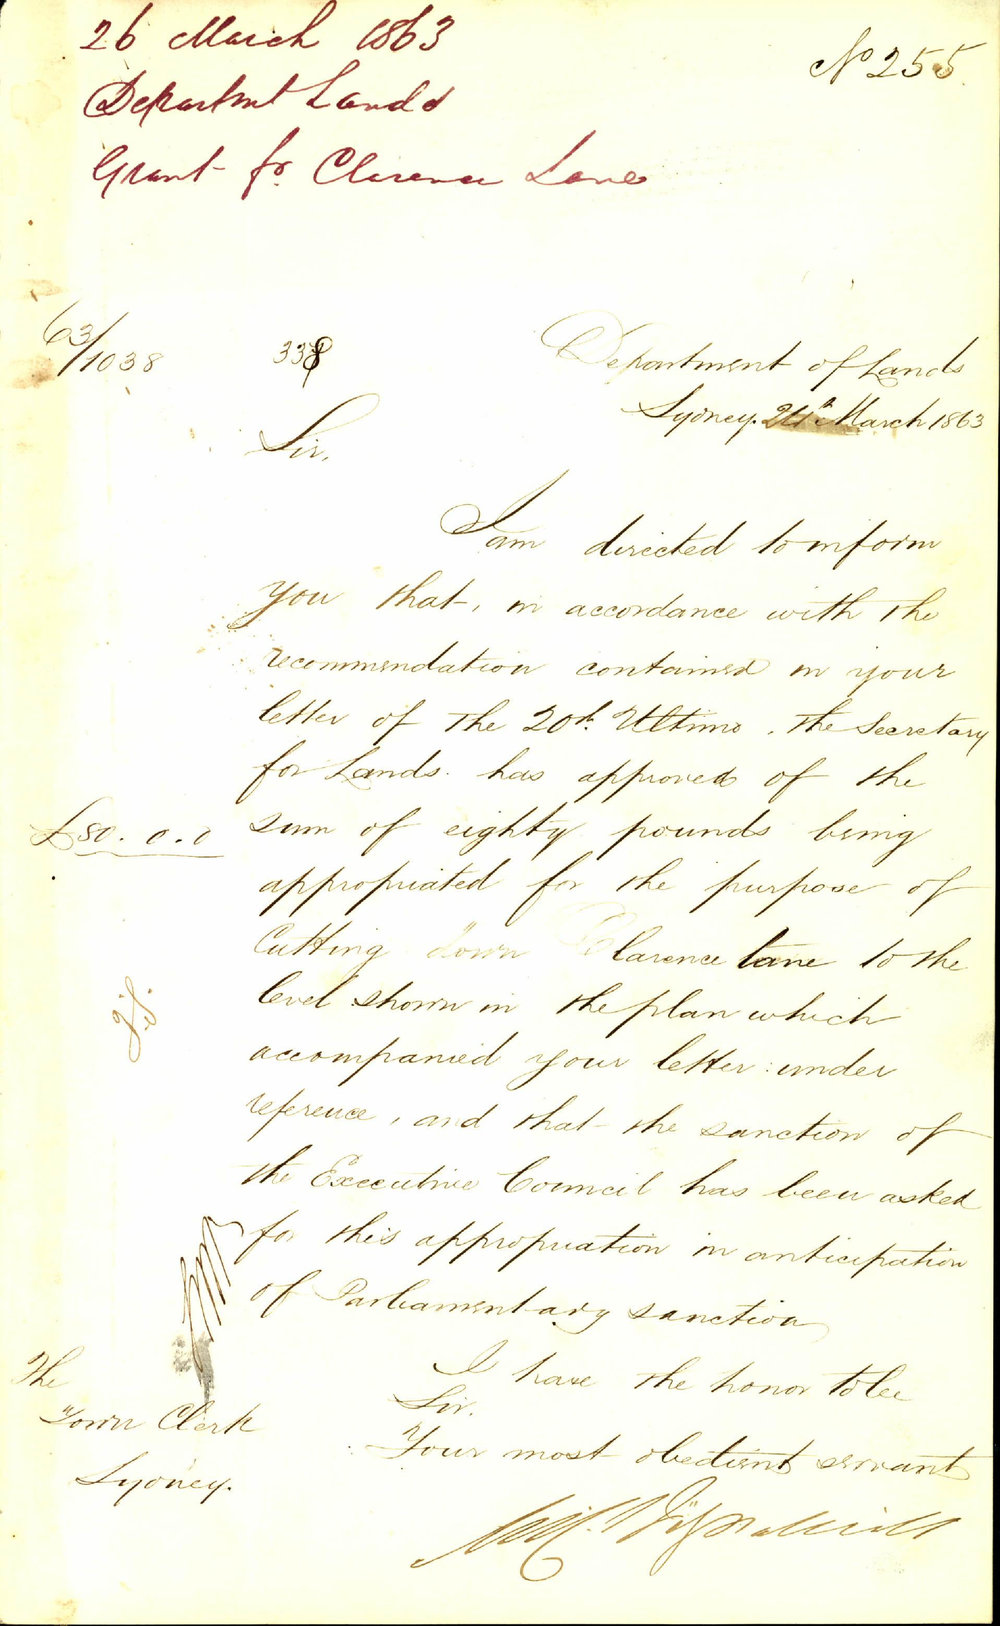 26 March 1863
Nº 255
Departmt Lands
Grant for Clarence Lane
63/1038
338
Department of Lands
Sydney. 24th March 1863
Sir,
I am directed to inform
you that, in accordance with the
recommendation contained in your
letter of the 20th Ultimo, the Secretary
for Lands has approved of the
£80.0.0
sum of eighty pounds being
appropriated for the purpose of
Cutting down Clarence Lane to the
level shown in the plan which
accompanied your letter under
reference, and that the sanction of
the Executive Council has been asked
for this appropriation in anticipation
of Parliamentary sanction
I have the honor to be
Sir.
Your most obedient servant
The
Town Clerk
Sydney.